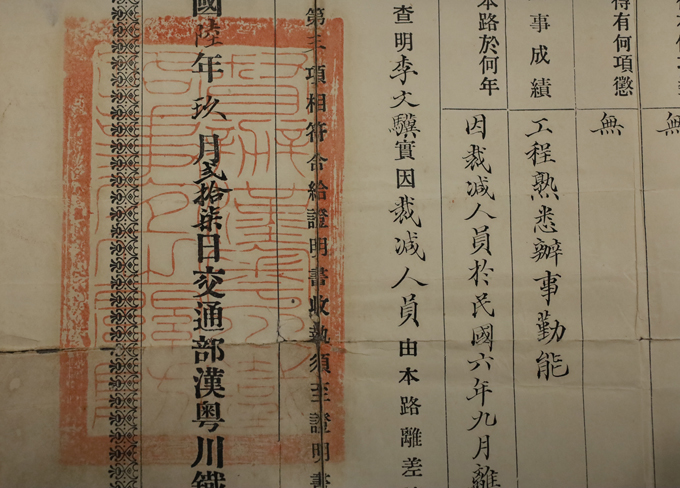 無
得有何項懲
無
事成績
工程熟悉辦事勤能
本路於何年
因裁減人員於民國六年九月離
查明李大驥實因裁減人員由本路離差
第三項相符合給證明書收執須至證明書
國陸年玖月貳拾柒日交通部漢粤川鐵